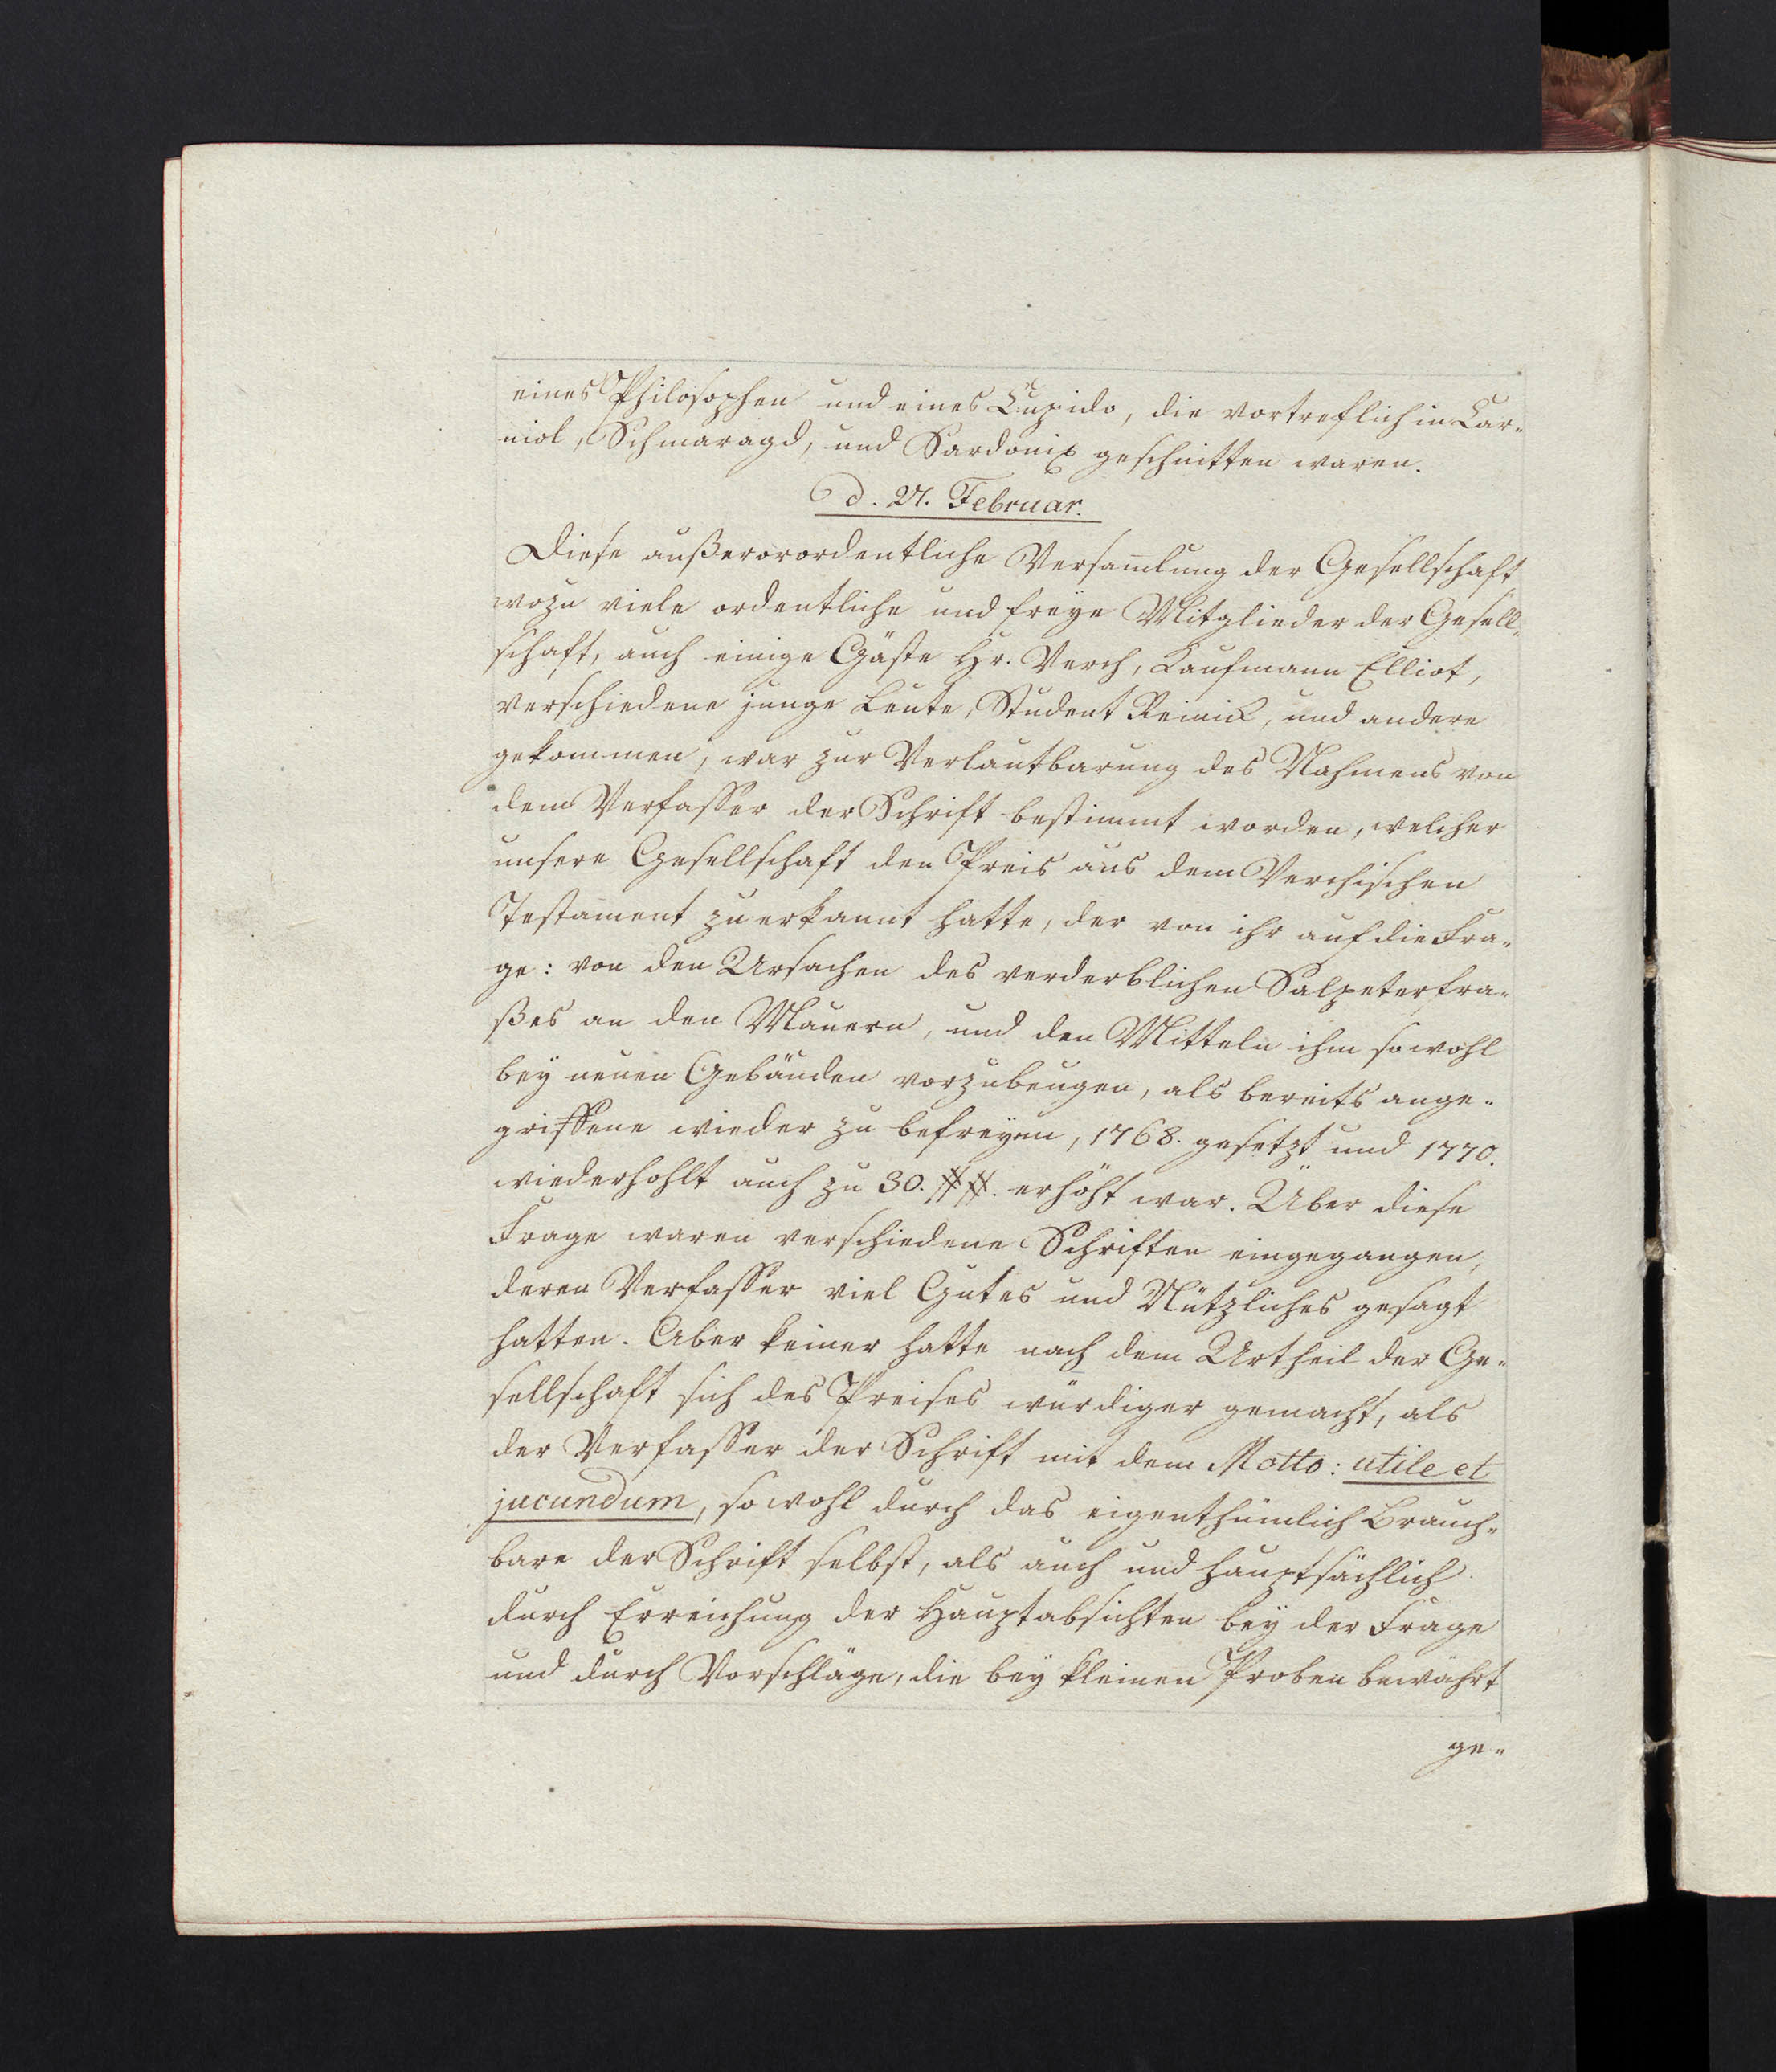 eines Philosophen und eines Cupido, die vortreflich in Car-
niol, Schmaragd, und Sardonix geschnitten waren.
d. 27. Februar.
Diese außerorordentliche Versam̅lung der Gesellschaft
wozu viele ordentliche und freye Mitglieder der Gesell-
schaft, auch einige Gäste Hr. Verch, Kaufmann Elliot,
verschiedene junge Leute, Student Reinick, und andere
gekommen, war zur Verlautbarung des Nahmens von
dem Verfasser der Schrift bestimmt worden, welcher
unsere Gesellschaft den Preis aus dem Verchischen
Testament zuerkannt hatte, der von ihr auf die Fra-
ge: von den Ursachen des verderblichen Salpeterfra-
ßes an den Mauern, und den Mitteln ihm sowohl
bey neuen Gebäuden vorzubeugen, als bereits ange-
griffene wieder zu befreyen, 1768. gesetzt und 1770.
wiederhohlt auch zu 30. ##. erhöht war. Über diese
Frage waren verschiedene Schriften eingegangen,
deren Verfasser viel Gutes und Nützliches gesagt
hatten. Aber keiner hatte nach dem Urtheil der Ge-
sellschaft sich des Preises würdiger gemacht, als
der Verfasser der Schrift mit dem Motto: utile et
jucundum, sowohl durch das eigenthümlich Brauch-
bare der Schrift selbst, als auch und hauptsächlich
durch Erreichung der Hauptabsichten bey der Frage
und durch Vorschläge, die bey kleinen Proben bewährt
ge-